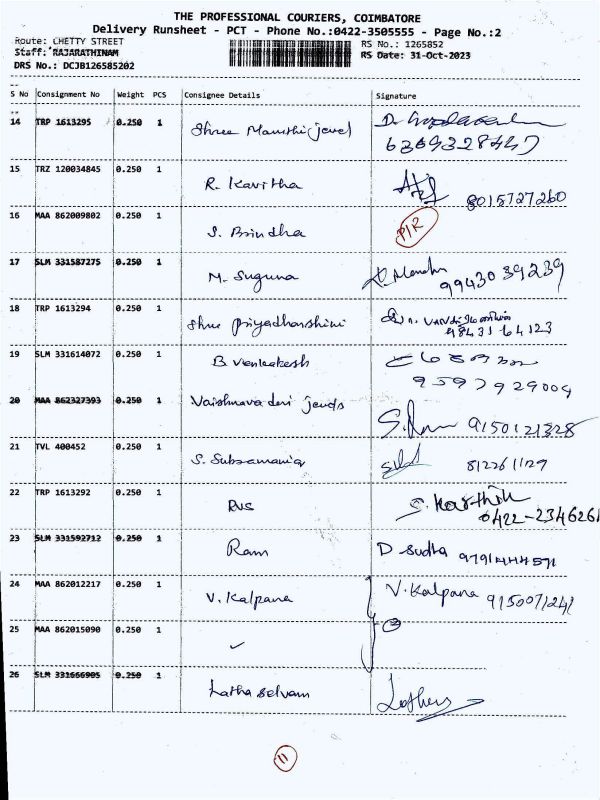 THE PROFESSIONAL COURIERS, COIMBATORE
Delivery Runsheet - PCT - Phone No.:0422-3505555 - Page No.:2
Route: CHETTY STREET RS No.: 1265852
Staff: RAJARATHINAM RS Date: 31-Oct-2023
DRS No.: DCJB126585202
S No Consignment No Weight PCS Consignee Details Signature
14 TRP 1613295 0.250 1 Shree Maruthi jewel D.
6369328447
15 TRZ 120034845 0.250 1 R. Kavitha 8015727260
16 MAA 862009802 0.250 1 S. Brindha P/R
17 SLM 331587275 0.250 1 M. Suguna
9943039239
18 TRP 1613294 0.250 1 Shree Priyadharshini
98431 64123
19 SLM 331614072 0.250 1 B Venkatesh
9597929009
20 MAA 862327393 0.250 1 Vaishnava devi jewels
9150121328
21 TVL 400452 0.250 1 S. Subramania 812261129
22 TRP 1613292 0.250 1 RVS S. Karthik
0422-2346261
23 SLM 331592712 0.250 1 Ram D Sudha 9791444591
24 MAA 862012217 0.250 1 V. Kalpana V. Kalpana 9150071241
25 MAA 862015090 0.250 1 ✓ 2
26 SLM 331666905 0.250 1 Latha Selvam
11